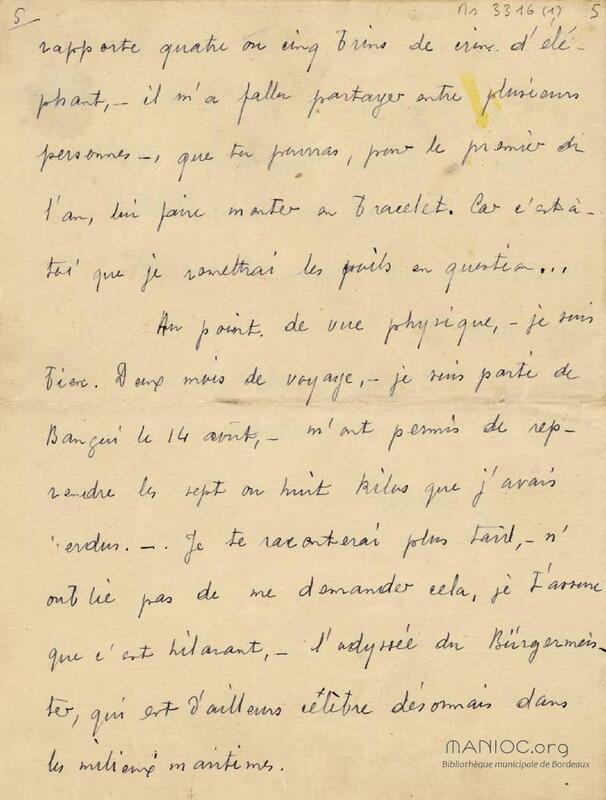 5
Ms 3316 (1) 5
rapporte quatre ou cinq brins de crins d'élé-
phant, – il m'a fallu partager entre plusieurs
personnes –, que tu pourras, pour le premier de
l'an, lui faire monter en bracelet. Car c'est à
toi que je remettrai les poils en question...
Au point de vue physique, – je suis
bien. Deux mois de voyage, – je suis parti de
Bangui le 14 août, – m'ont permis de rep-
rendre les sept ou huit kilos que j'avais
perdus. –. Je te raconterai plus tard, – n'
oublie pas de me demander cela, je t'assure
que c'est hilarant, – l'odyssée du Bürgermeis-
ter, qui est d'ailleurs célèbre désormais dans
les milieux maritimes.
MANIOC.org
Bibliothèque municipale de Bordeaux